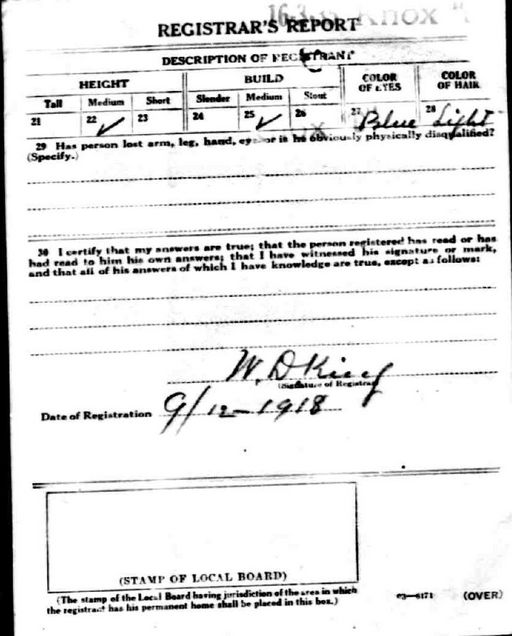 Knox
REGISTRAR'S REPORT
DESCRIPTION OF REGISTRANT
HEIGHT BUILD COLOR OF EYES COLOR OF HAIR
Tall Medium Short Slender Medium Stout
21 22 ✓ 23 24 25 ✓ 26 27 Blue 28 Light
29 Has person lost arm, leg, hand, eye, or is he obviously physically disqualified?
(Specify.)
30 I certify that my answers are true; that the person registered has read or has
had read to him his own answers; that I have witnessed his signature or mark,
and that all of his answers of which I have knowledge are true, except as follows:
W. D King
(Signature of Registrar)
Date of Registration 9/12-1918
(STAMP OF LOCAL BOARD)
(The stamp of the Local Board having jurisdiction of the area in which
the registrant has his permanent home shall be placed in this box.)
03—6171 (OVER)